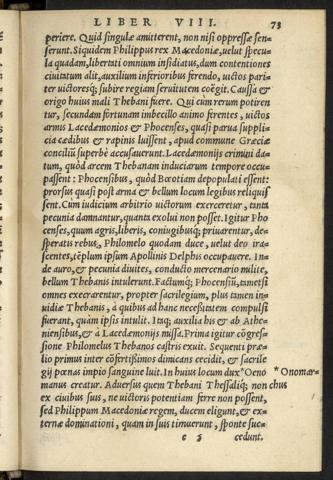 LIBER VIII. 73
periere. Quid singulæ amitterent, non nisi oppressæ sen-
serunt. Siquidem Philippus rex Macedoniæ, uelut specu-
la quadam, libertati omnium insidiatus, dum contentiones
ciuitatum alit, auxilium inferioribus ferendo, uictos pari-
ter uictoresq; subire regiam seruitutem coëgit. Caussa &
origo huius mali Thebani fuere. Qui cùm rerum potiren
tur, secundam fortunam imbecillo animo ferentes, uictos
armis Lacedæmonios & Phocenses, quasi parua suppli-
cia cædibus & rapinis luissent, apud commune Græciæ
concilium superbè accusauerunt. Lacedæmonijs crimini da-
tum, quòd arcem Thebanam induciarum tempore occu-
passent: Phocensibus, quòd Bœotiam depopulati essent:
prorsus quasi post arma & bellum locum legibus reliquis
sent. Cum iudicium arbitrio uictorum exerceretur, tanta
pecunia damnantur, quanta exolui non posset. Igitur Pho
censes, quum agris, liberis, coniugibusq; priuarentur, de-
speratis rebus, Philomelo quodam duce, uelut deo ira-
scentes, tẽplum ipsum Apollinis Delphis occupauere. In-
de auro, & pecunia diuites, conducto mercenario milite,
bellum Thebanis intulerunt. Factumq; Phocensiũ, tametsi
omnes execrarentur, propter sacrilegium, plus tamen in-
uidiæ Thebanis, à quibus ad hanc necessitatem compulsi
fuerant, quàm ipsis intulit. Itaq; auxilia his & ab Athe-
niensibus, & à Lacedæmonijs missa. Prima igitur cõgres-
sione Philomelus Thebanos castris exuit. Sequenti præ-
lio primus inter cõfertißimos dimicans cecidit, & sacrile
gij pœnas impio sanguine luit. In huius locum dux *Oeno
manus creatur. Aduersus quem Thebani Thessaliq; non
*Onomar-
chus
ex ciuibus suis, ne uictoris potentiam ferre non possent,
sed Philippum Macedoniæ regem, ducem eligunt, & ex-
ternæ dominationi, quam in suis timuerunt, sponte suc-
cedunt.